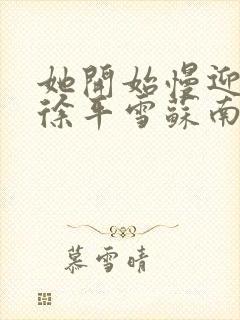 她開始慢迎
徐平雪蘇南
慕雪晴